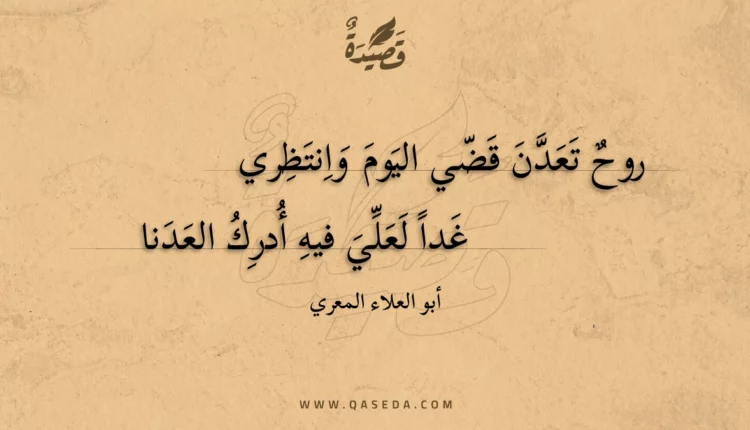 قَصِيدَةٌ
روحٌ تَعَدَّنَ قَضّي اليَومَ وَاِنتَظِري
غَداً لَعَلِّيَ فيهِ أُدرِكُ العَدَنا
أبو العلاء المعري
WWW.QASEDA.COM